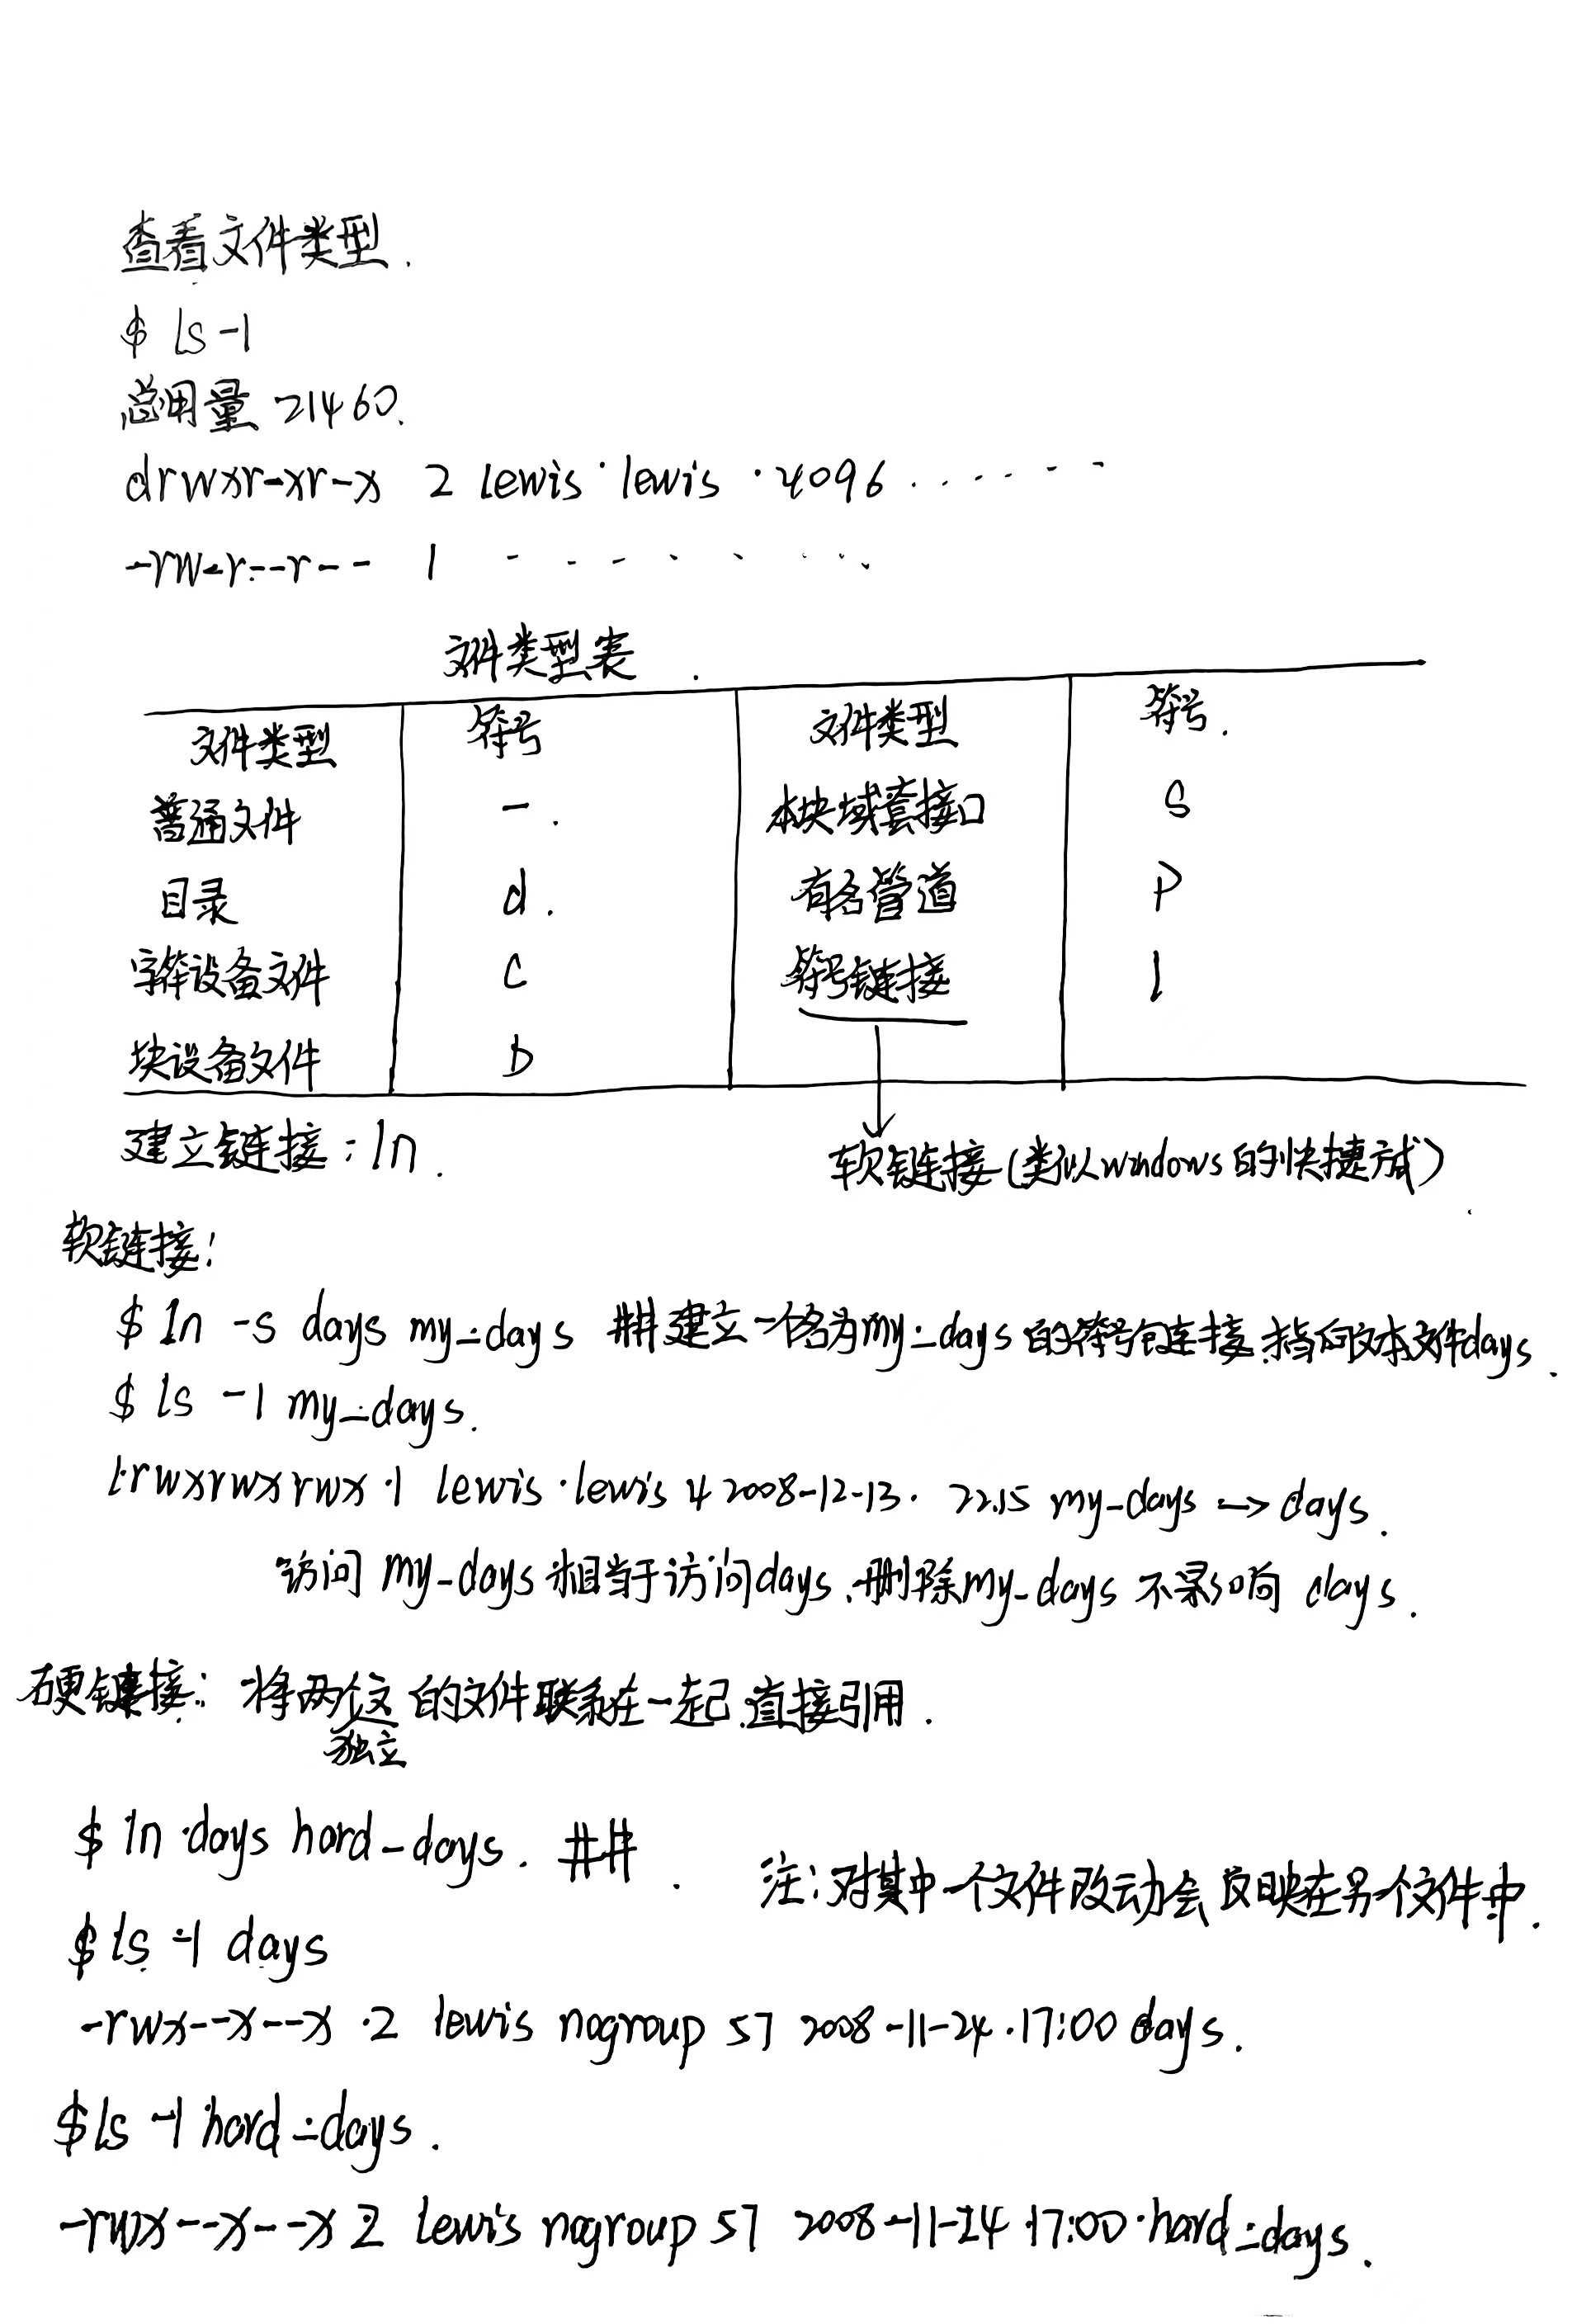 查看文件类型.
$ ls -l
总用量 21460.
drwxr-xr-x 2 lewis lewis 4096 ......
-rw-r--r-- 1 ........
文件类型表
文件类型 符号 文件类型 符号.
普通文件 - 本块域套接口 s
目录 d. 有名管道 p
字符设备文件 c 符号链接 l
块设备文件 b
建立链接:ln.
软链接(类似windows的快捷方式)
软链接:
$ ln -s days my_days ## 建立一个名为my_days的符号链接,指向文本文件days.
$ ls -l my_days.
lrwxrwxrwx 1 lewis lewis 4 2008-12-13 22:15 my_days -> days.
访问 my_days 相当于访问days,删除my_days 不影响 days.
硬链接: 将两个独立的文件联系在一起.直接引用.
$ ln days hard_days. ##
注:对其中一个文件改动会反映在另个文件中.
$ ls -l days
-rwx--x--x 2 lewis nogroup 57 2008-11-24 17:00 days.
$ ls -l hard_days.
-rwx--x--x 2 lewis nogroup 57 2008-11-24 17:00 hard_days.